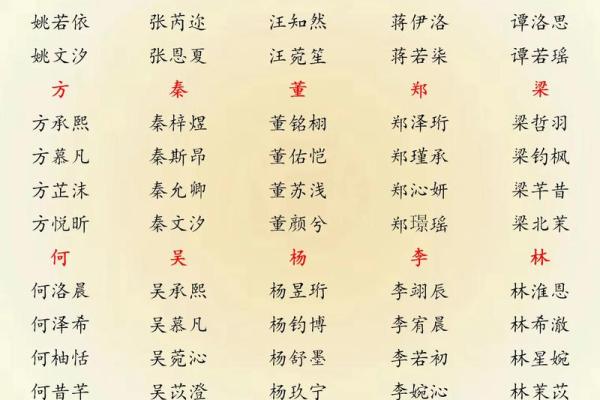 姚若依 张芮迩 汪知然 蒋伊洛 谭洛思
姚文汐 张恩夏 汪菀笙 蒋若柒 谭若瑶
方 秦 董 郑 梁
方承熙 秦梓煜 董铭栩 郑泽珩 梁哲羽
方慕凡 秦斯昂 董佑恺 郑瑾承 梁钧枫
方芷沫 秦允卿 董苏浅 郑沁妍 梁芊昔
方悦昕 秦文汐 董颜兮 郑璟瑶 梁北茉
何 吴 杨 李 林
何洛晨 吴承熙 杨昱珩 李翊辰 林淮恩
何泽希 吴慕凡 杨钧博 李宥晨 林希澈
何柚恬 吴菀沁 杨舒墨 李若初 林星婉
何昔芊 吴苡澄 杨玖宁 李婉沁 林茉苡